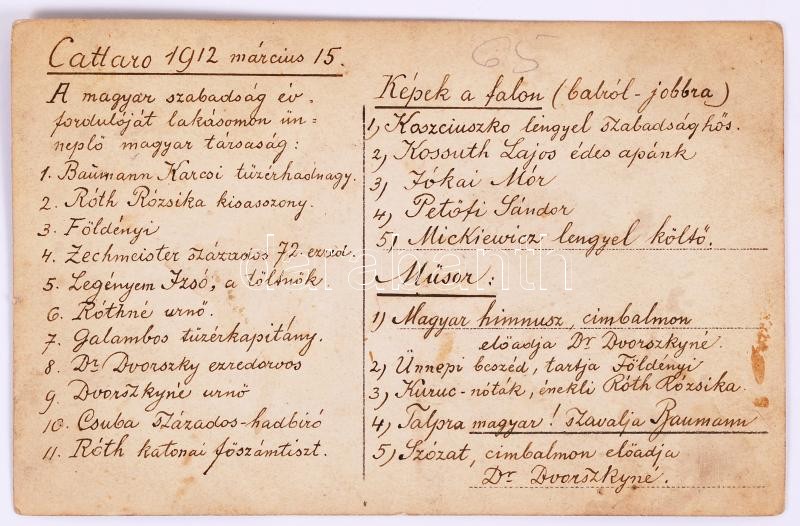 65
Cattaro 1912 március 15.
A magyar szabadság év,
fordulóját lakásomon ün=
neplő magyar társaság:
1. Baümann Karcsi tüzérhadnagy.
2. Róth Rózsika kisasszony.
3. Földényi
4. Zechmeister százados 72. ezred.
5. Legényem Izsó, a töltnök.
6. Róthné urnő.
7. Galambos tüzérkapitány.
8. Dr Dvorszky ezredorvos
9. Dvorszkyné urnő
10. Csuba Százados-hadbiró
11. Róth katonai főszámtiszt.
Képek a falon (balról-jobbra)
1, Koszciuszko lengyel szabadsághős.
2, Kossuth Lajos édes apánk
3, Jókai Mór
4, Petőfi Sándor
5, Mickiewicz lengyel költő.
Műsor:
1, Magyar himnusz, cimbalmon
előadja Dr Dvorszkyné.
2, Ünnepi beszéd, tartja Földényi
3, Kuruc-nóták, énekli Róth Rózsika.
4, Talpra magyar! szavalja Baumann
5, Szózat, cimbalmon előadja
Dr Dvorszkyné.
darabanth